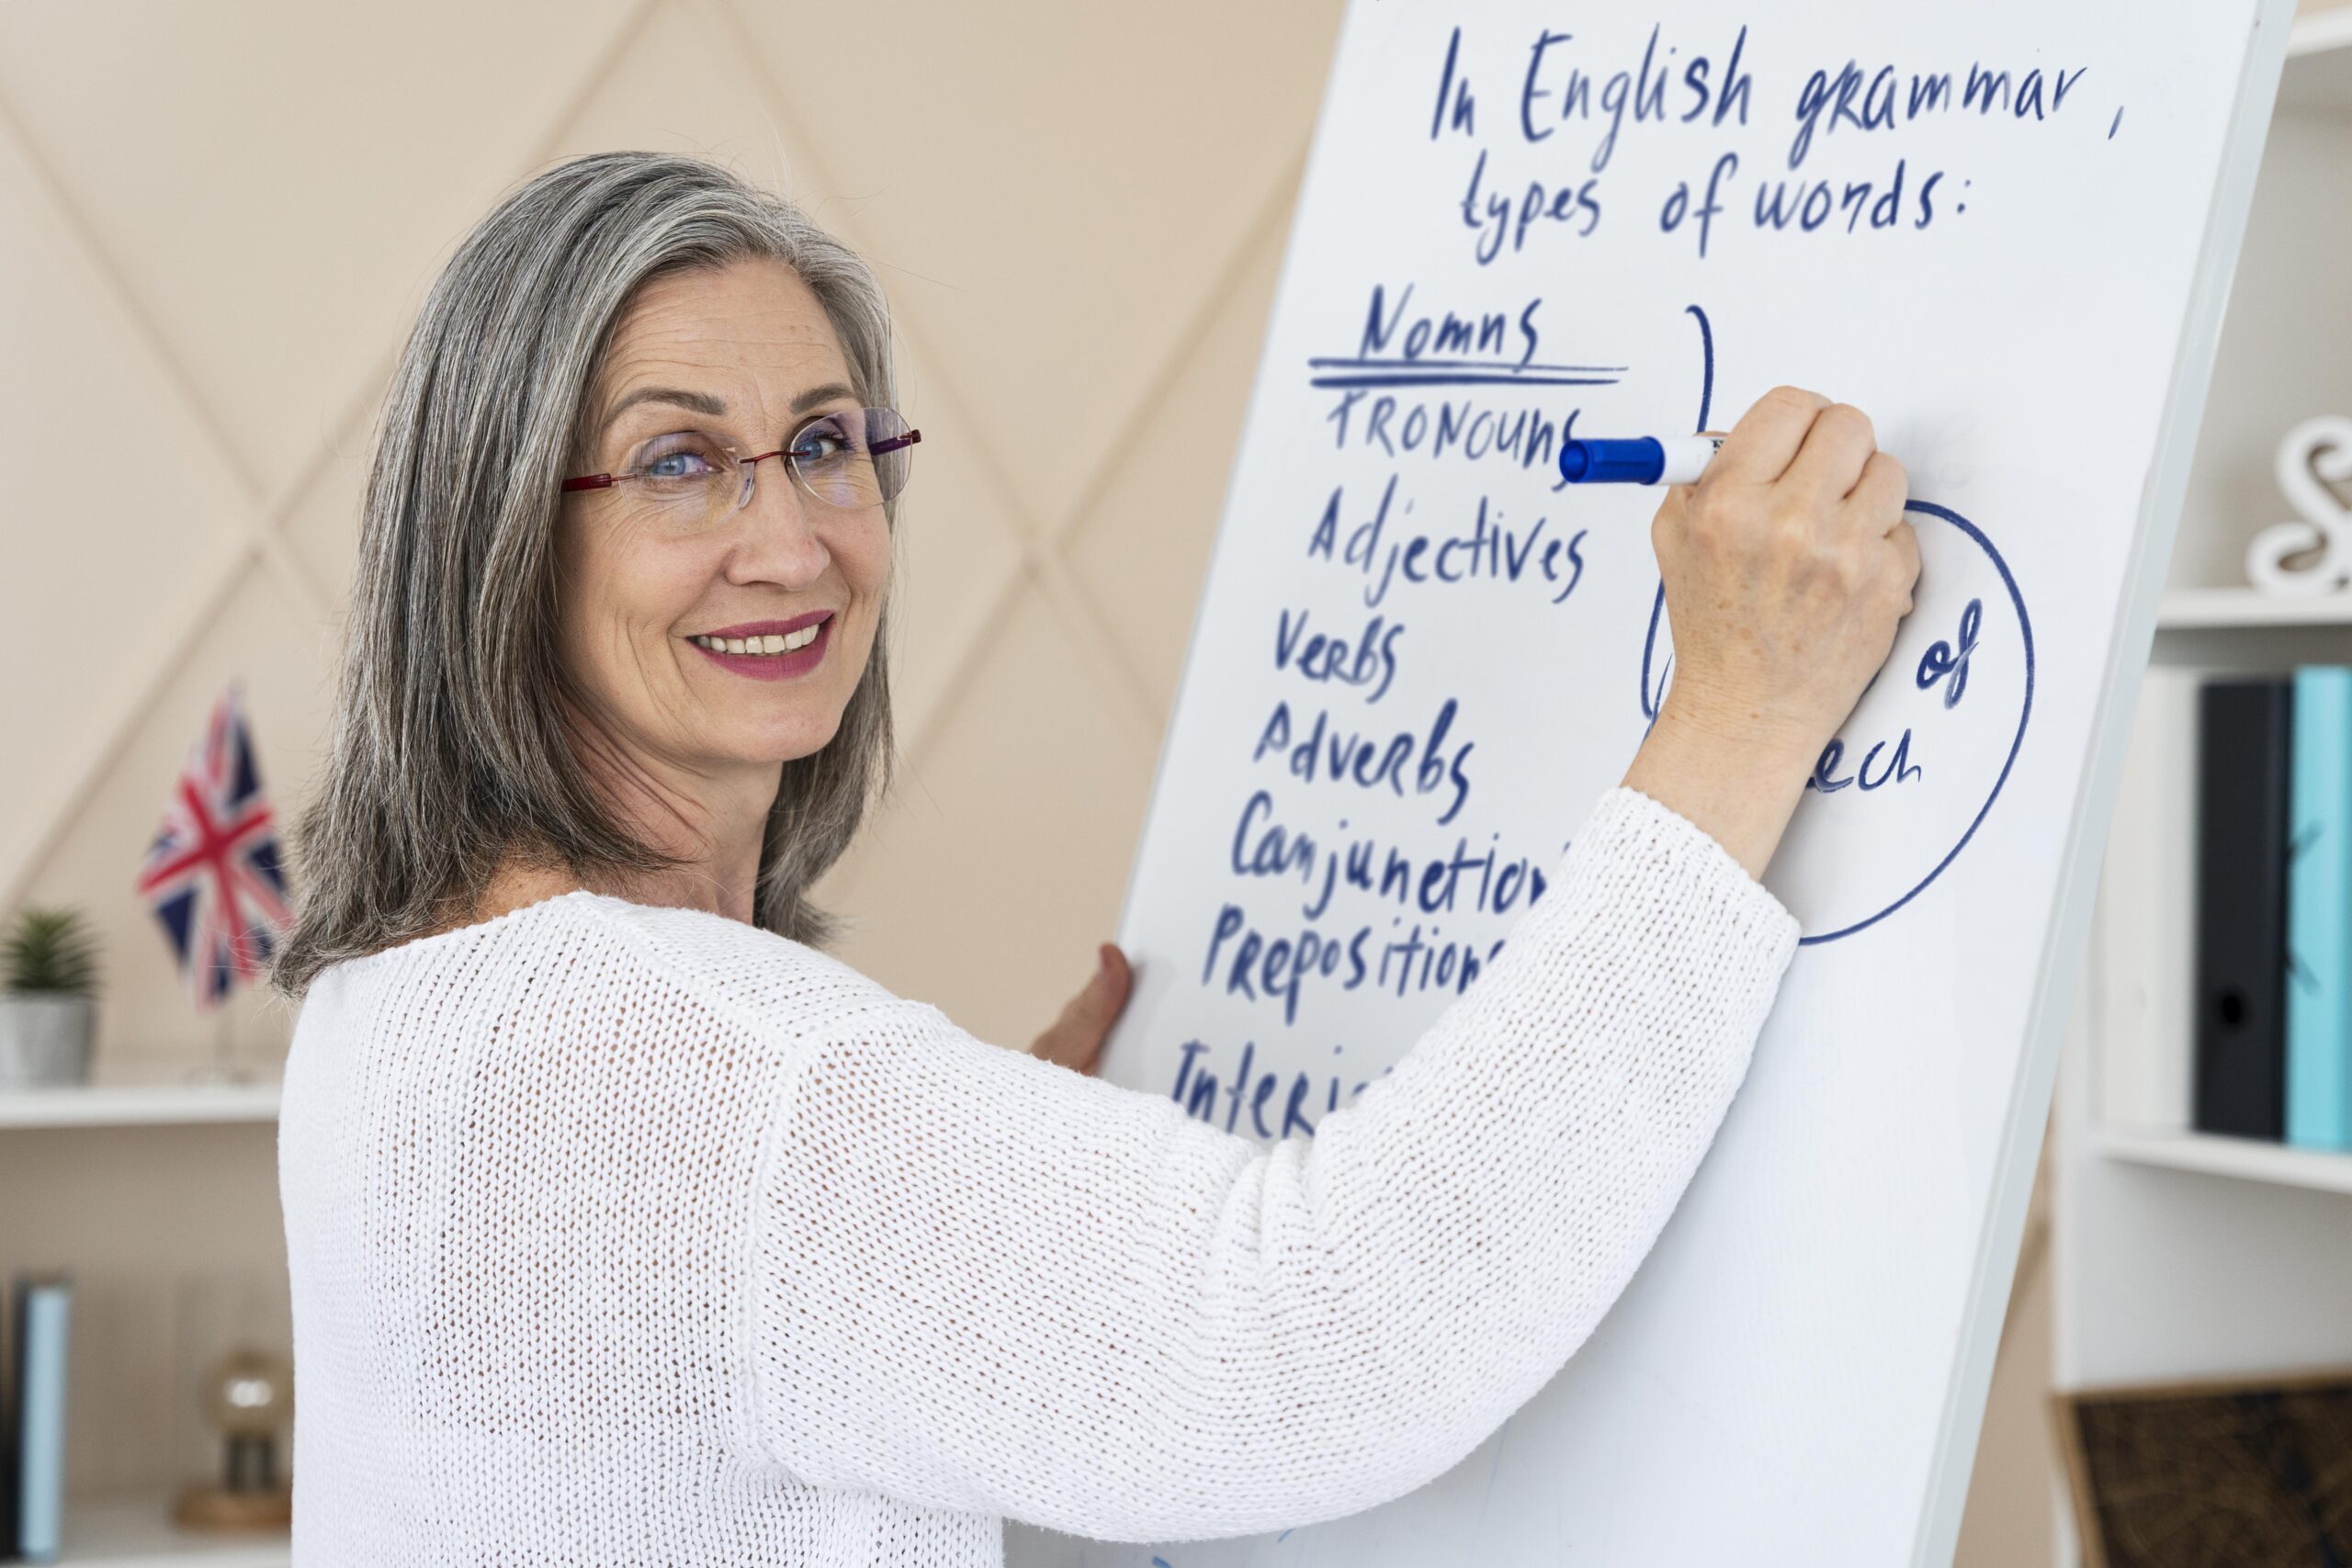 In English grammar,
types of words:
Nomns
PRONOUNS
Adjectives
Verbs
Adverbs
Canjunction
Prepositions
Interj
of
ech